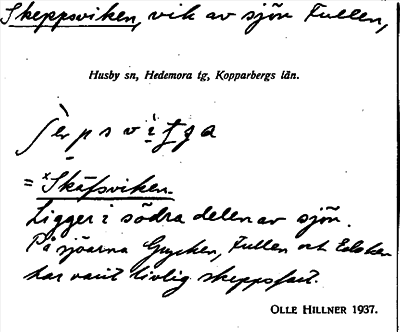 Skeppsviken, vik av sjön Fullen,
Husby sn, Hedemora tg, Kopparbergs län.
= *Skäfsviken.
Ligger i södra delen av sjön.
På sjöarna Grycken, Fullen och
har varit livlig skeppsfart.
OLLE HILLNER 1937.